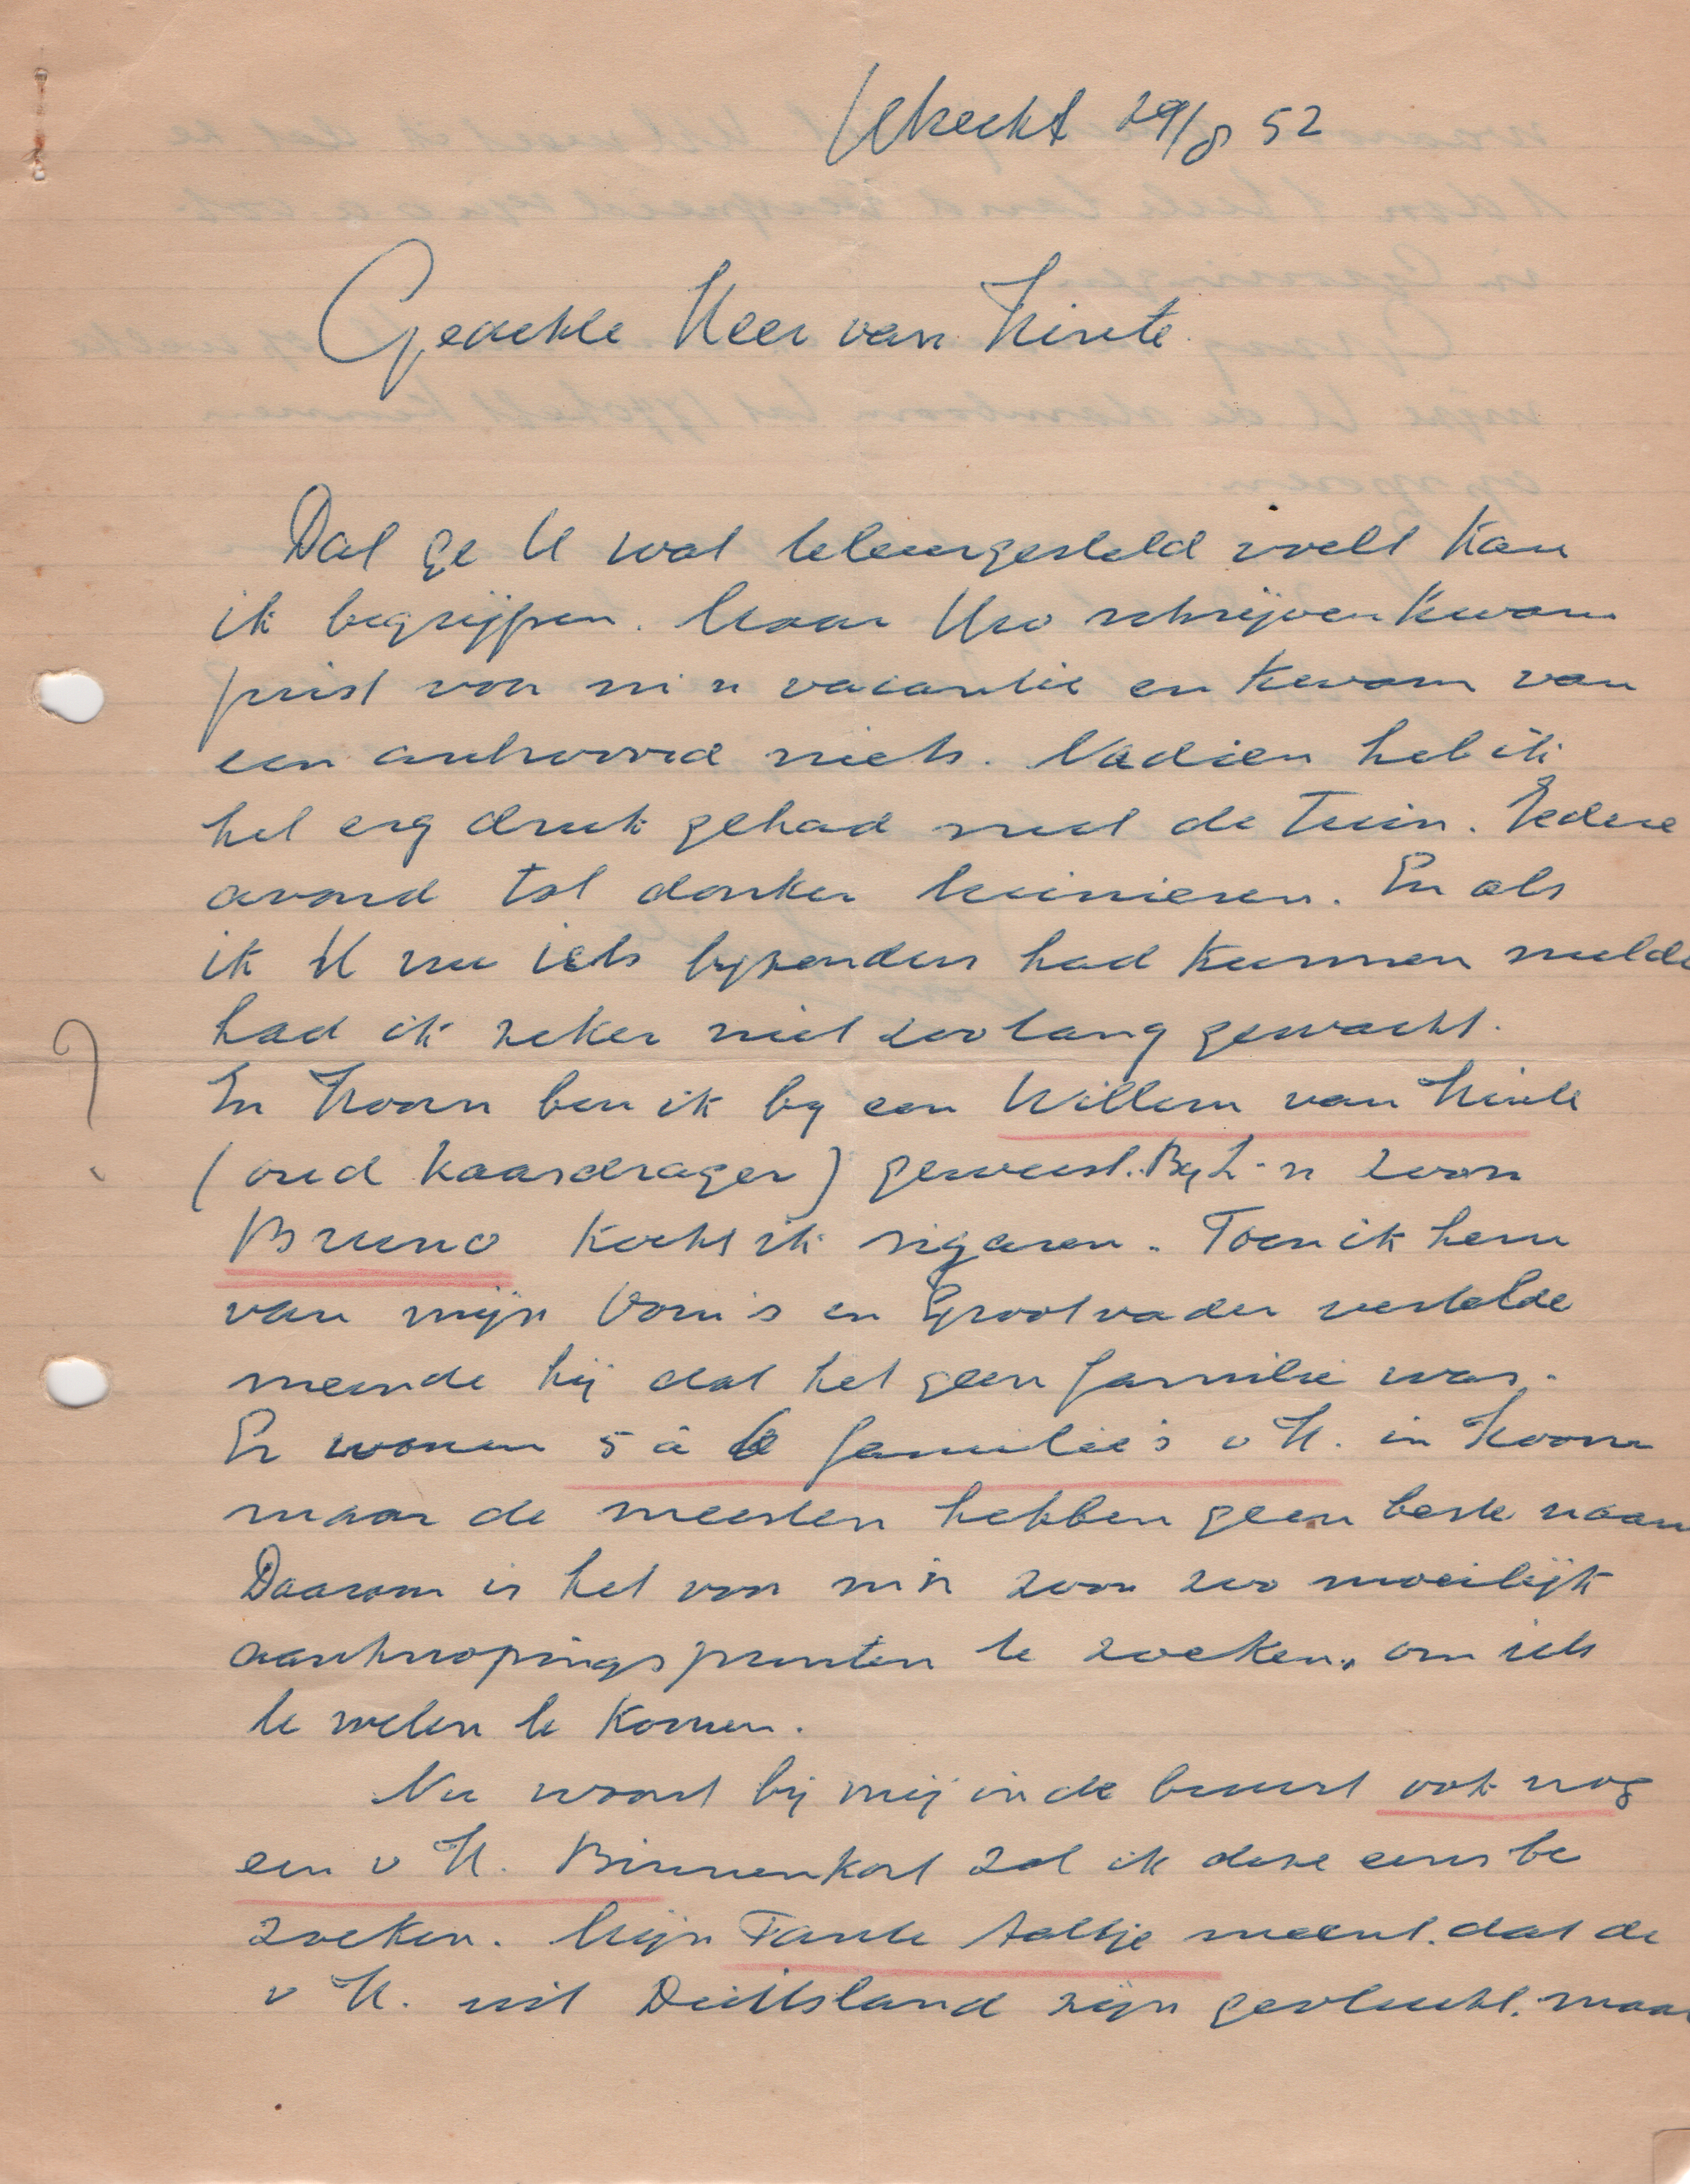 Utrecht 29/8 52
Geachte Heer van Hinte.
Dat ge U wat teleurgesteld voelt kan
ik begrijpen. Maar Uw schrijven kwam
juist voor m'n vacantie en kwam van
een antwoord niets. Nadien heb ik
het erg druk gehad met de tuin. Iedere
avond tot donker tuinieren. En als
ik U nu iets byzonders had kunnen melde
had ik zeker niet zoo lang gewacht.
In Hoorn ben ik by een Willem van Hinte
(oud kaasdrager) geweest. By z'n zoon
Bruno kocht ik sigaren. Toen ik hem
van mijn Oom's en Grootvader vertelde
meende hij dat het geen familie was.
Er wonen 5 à 6 familie's v H. in Hoorn
maar de meesten hebben geen beste naam
Daarom is het voor m'n zoon zoo moeilijk
aanknopingspunten te zoeken, om iets
te weten te komen.
Nu woont bij mij in de buurt ook nog
een v H. Binnenkort zal ik deze eens be
zoeken. Mijn Tante Aaltje meent. dat de
v H. uit Duitsland zijn gevlucht. maar